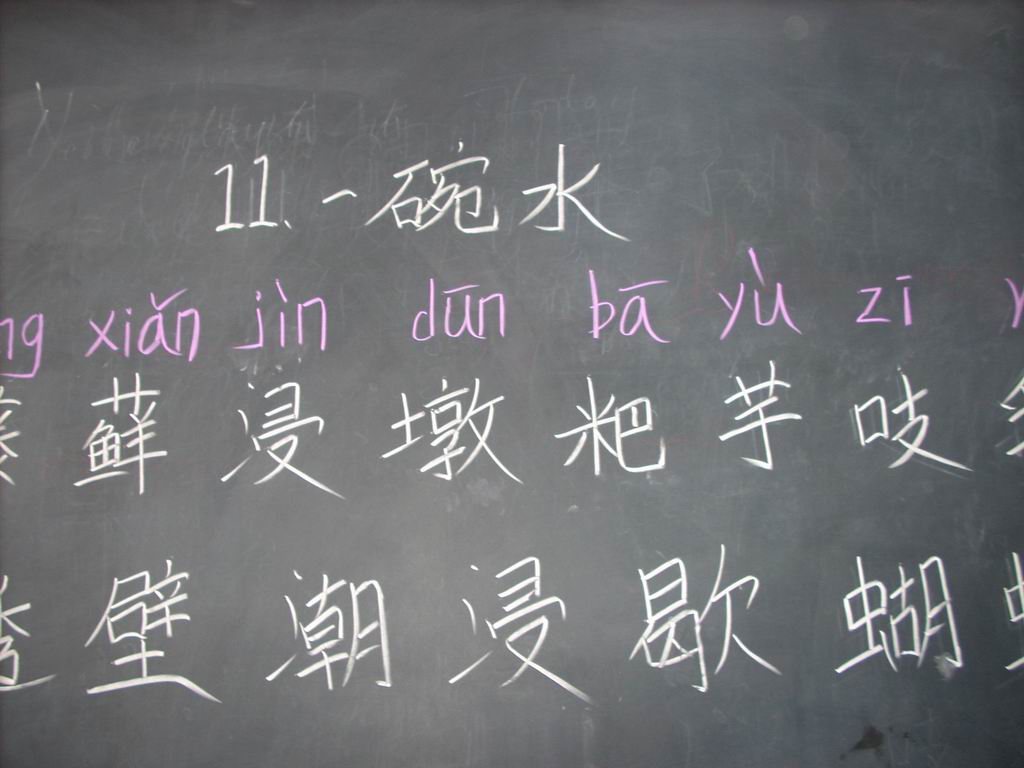 11. 一碗水
ng xiǎn jìn dūn bā yù zī
藓 浸 墩 粑 芋 吱
透 壁 潮 浸 歇 蝴